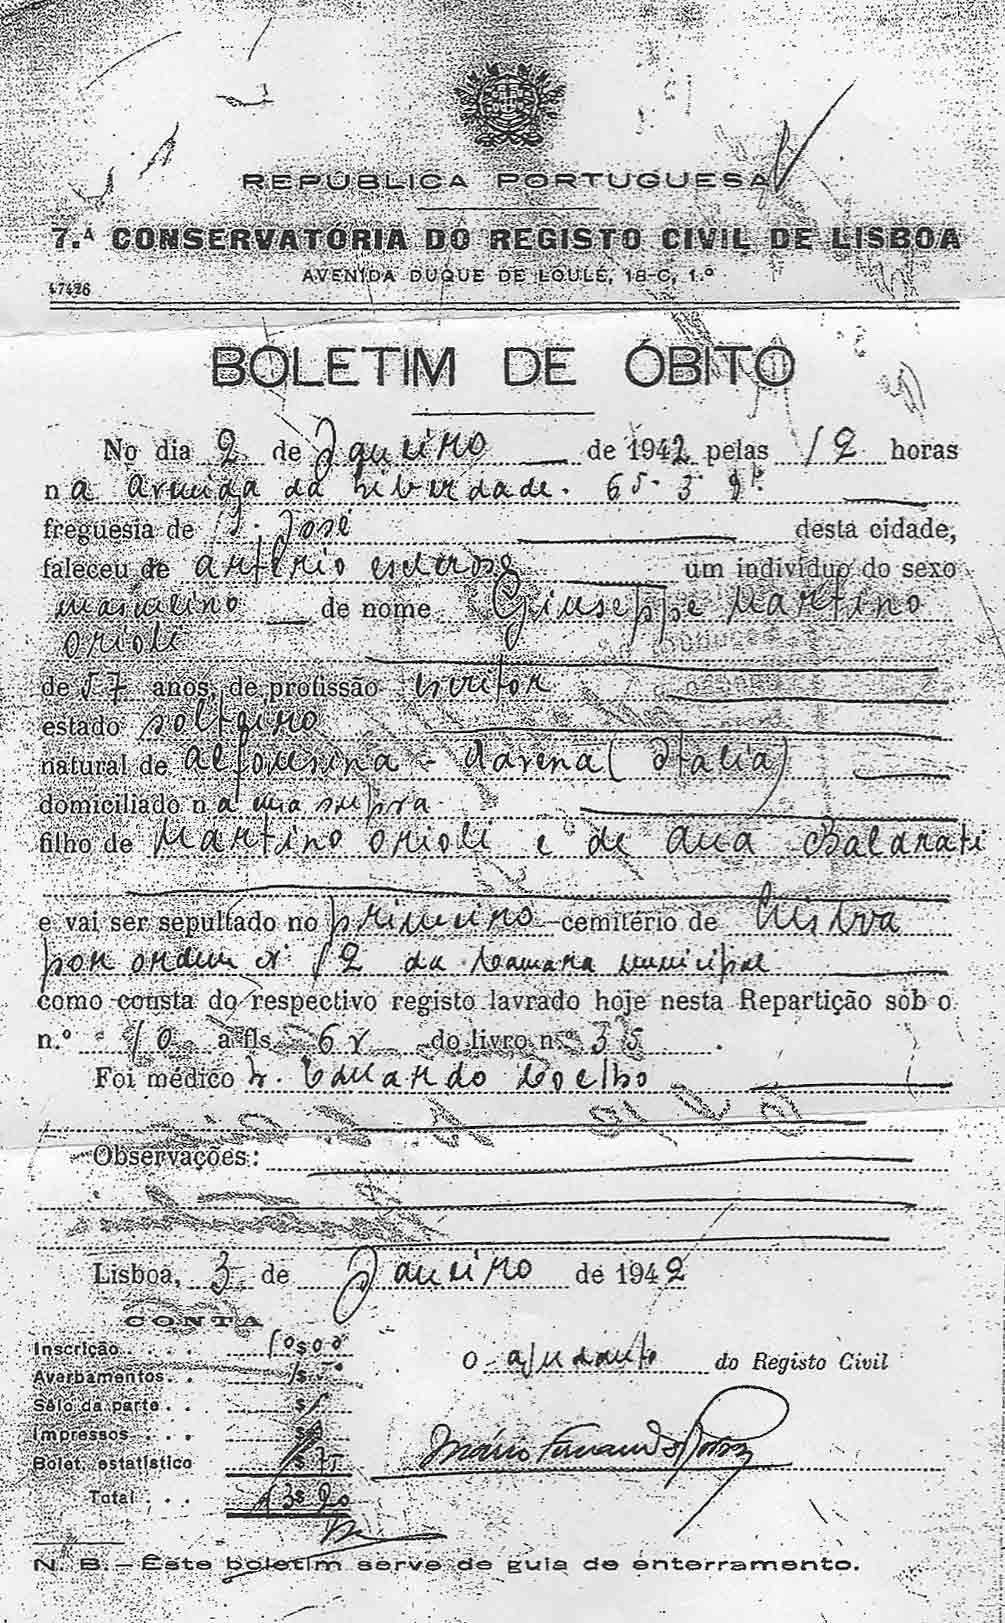 REPÚBLICA PORTUGUESA
7.ª CONSERVATÓRIA DO REGISTO CIVIL DE LISBOA
AVENIDA DUQUE DE LOULÉ, 18-C, 1.º
47426
BOLETIM DE ÓBITO
No dia 2 de Janeiro de 1942 pelas 12 horas
na Avenida da Liberdade. 65. 3º
freguesia de S. José desta cidade,
faleceu de arterio esclerose um indivíduo do sexo
masculino de nome Giuseppe Martino
Orioli
de 57 anos, de profissão escritor
estado solteiro
natural de Alfonsina - Ravena (Italia)
domiciliado na supra
filho de Martino Orioli e de Ana Balarati
e vai ser sepultado no primeiro cemitério de Lisboa
por ordem nº 12 da Camara Municipal
como consta do respectivo registo lavrado hoje nesta Repartição sob o
n.º 10 a fls. 6v do livro n.º 35.
Foi médico Dr. Eduardo Coelho
Observações:
Lisboa, 3 de Janeiro de 1942
CONTA
Inscrição 10$00
Averbamentos
O ajudante do Registo Civil
Sêlo da parte
Impressos
Bolet. estatístico
Mário Fernandes
Total 13$20
N. B.—Este boletim serve de guia de enterramento.